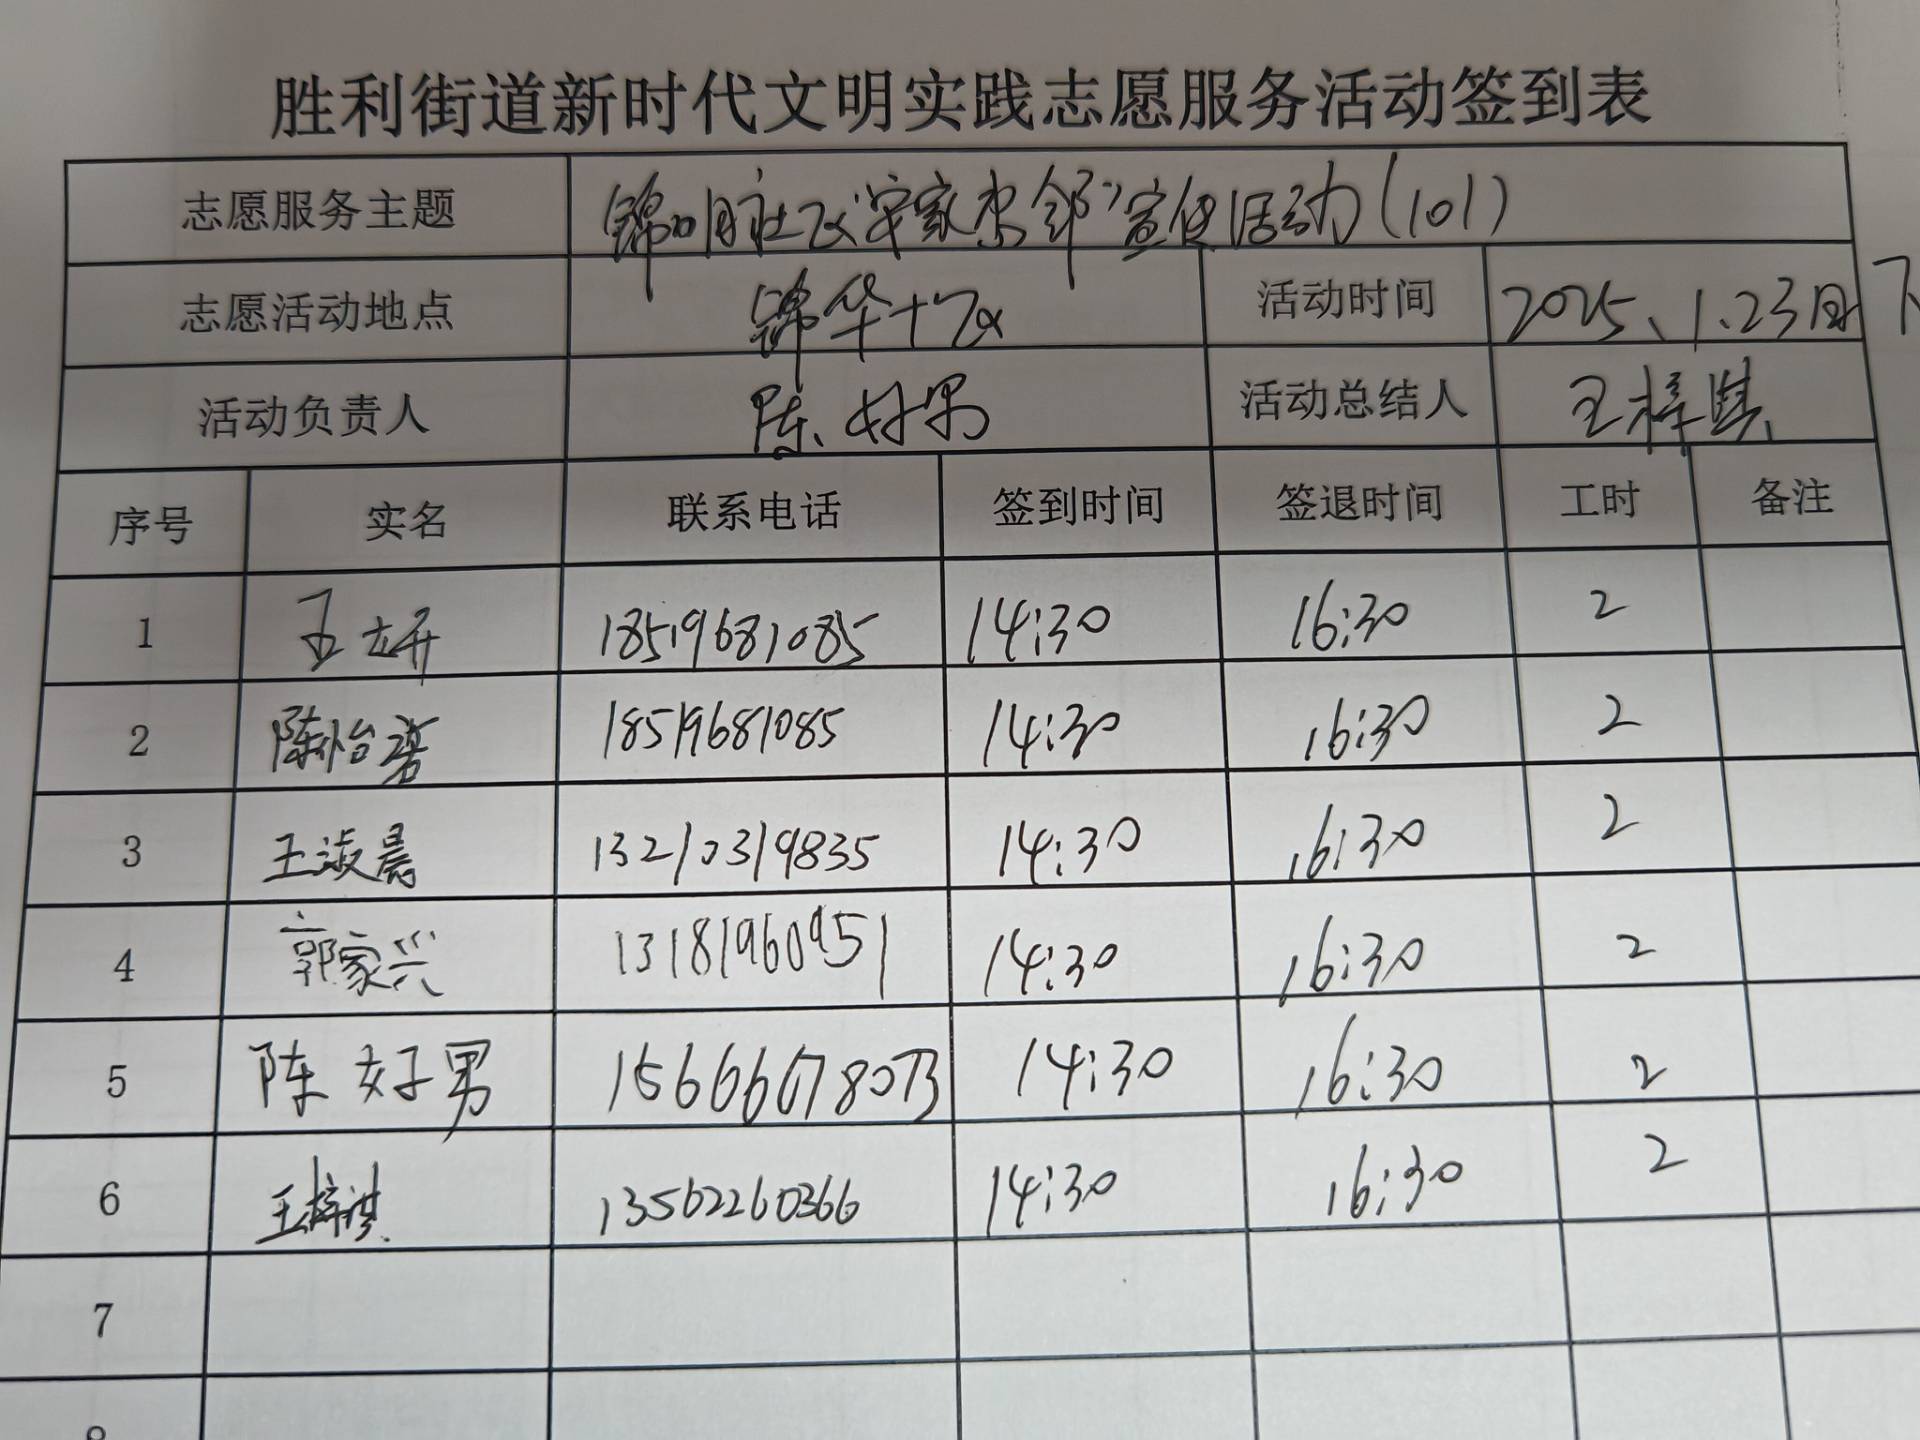 胜利街道新时代文明实践志愿服务活动签到表
志愿服务主题 锦明社区"安家杰邻"宣传活动(101)
志愿活动地点 锦华十区 活动时间 2025、1.23日 下
活动负责人 陈好男 活动总结人 王梓淇
序号 实名 联系电话 签到时间 签退时间 工时 备注
1 18519681085 14:30 16:30 2
2 陈怡 18519681085 14:30 16:30 2
3 王淑晨 13210319835 14:30 16:30 2
4 郭家兴 13181960951 14:30 16:30 2
5 陈好男 14:30 16:30 2
6 王梓淇 13562260366 14:30 16:30 2
7